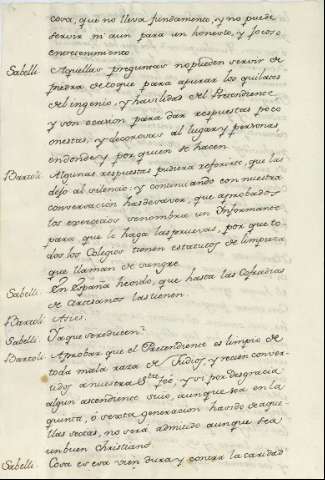 cosa, que no lleva fundamento, y no puede
servir ni aun para un honesto, y jocoso
entretenimiento
Sabelli. Aquellas preguntas no pueden servir de
piedra de toque para apurar los quilates
del ingenio, y havilidad del Pretendiente
y son ocasion para dar respuestas poco
onestas, y decorosas al lugar y personas
en donde, y por quien se hacen
Bartoli. Algunas respuestas pudiera referirte, que las
dejo al silencio, y continuando con nuestra
conversación has de saver, que aprobados
los exercicios se nombra un Informante
para que le haga las pruevas, por que to
dos los Colegios tienen estatutos de limpieza
que llaman de sangre
Sabelli. En España he oido, que hasta las Cofradias
de Artesanos las tienen.
Bartoli. Asi es.
Sabelli. Y a que se reducen?
Bartoli. Aprobar que el Pretendiente es limpio de
toda mala raza de Judios, y recien conver
tidos a nuestra Sta. fee, y si por desgracia
algun ascendiente suio, aunque sea en la
quinta, ó sexta generacion ha sido de aque
llas sectas, no será admitido aunque sea
un buen Christiano
Sabelli. Cosa es esa vien dura, y contra la caridad